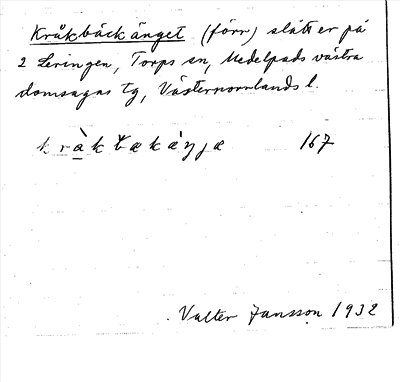 Kråkbäckänget (förr) slåtter på
2 Leringen, Torps sn, Medelpads västra
domsagas tg, Västernorrlands l.
167
Valter Jansson 1932